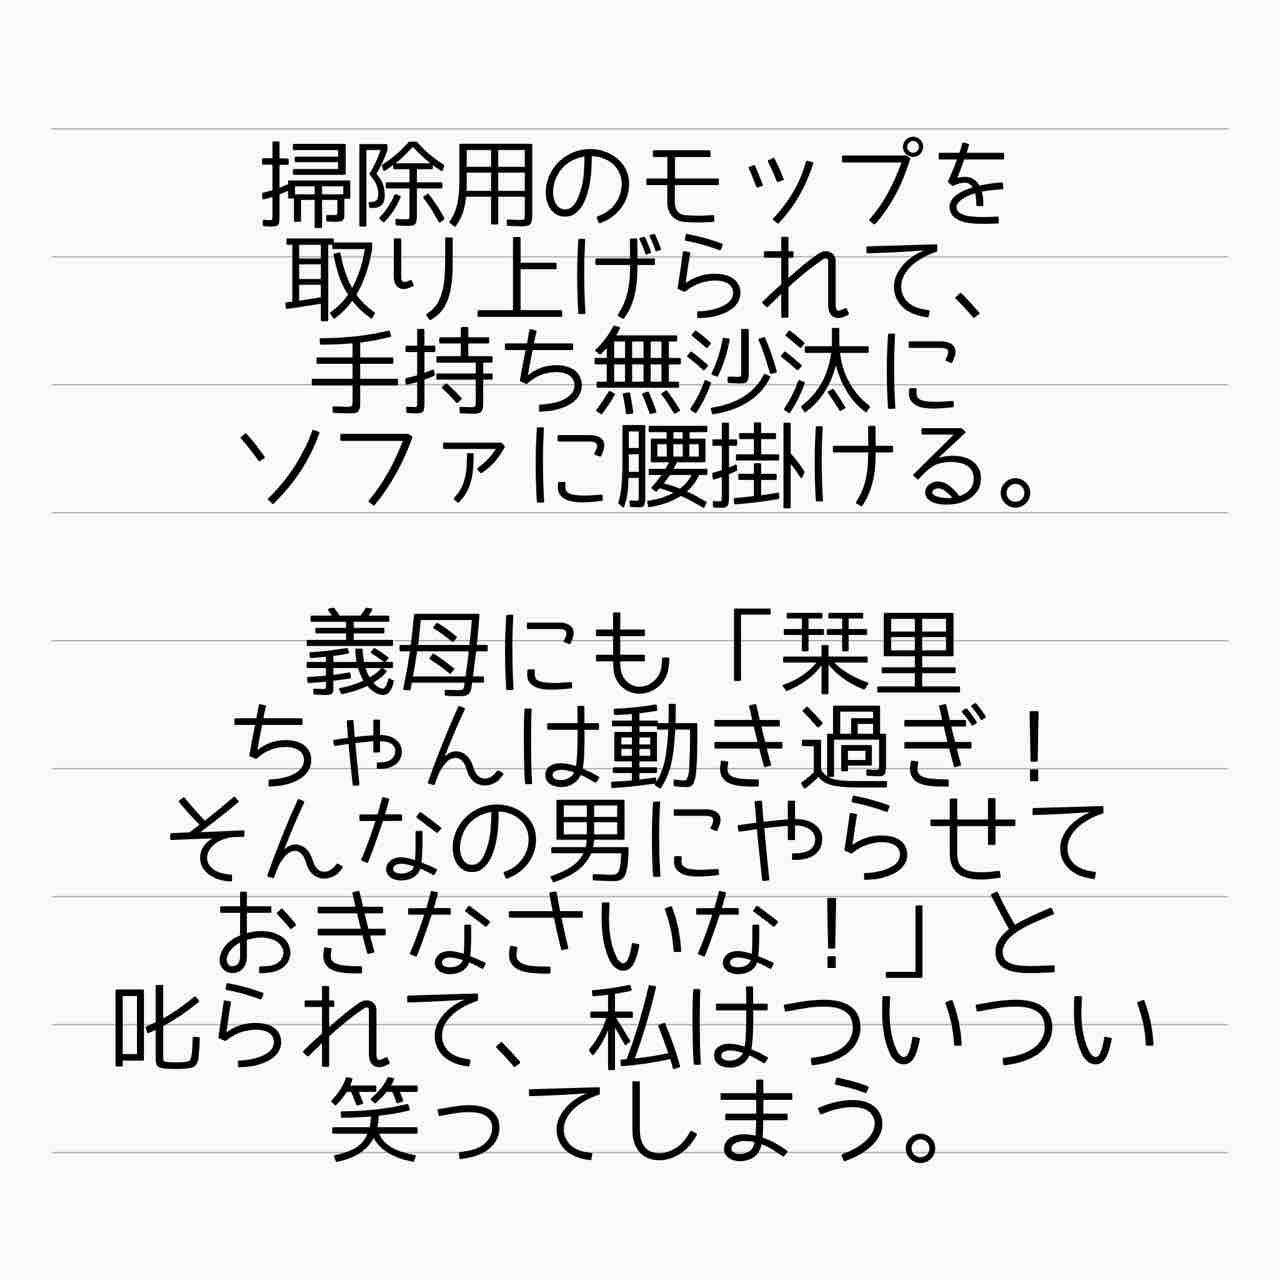 掃除用のモップを
取り上げられて、
手持ち無沙汰に
ソファに腰掛ける。
義母にも「栞里
ちゃんは動き過ぎ！
そんなの男にやらせて
おきなさいな！」と
叱られて、私はついつい
笑ってしまう。